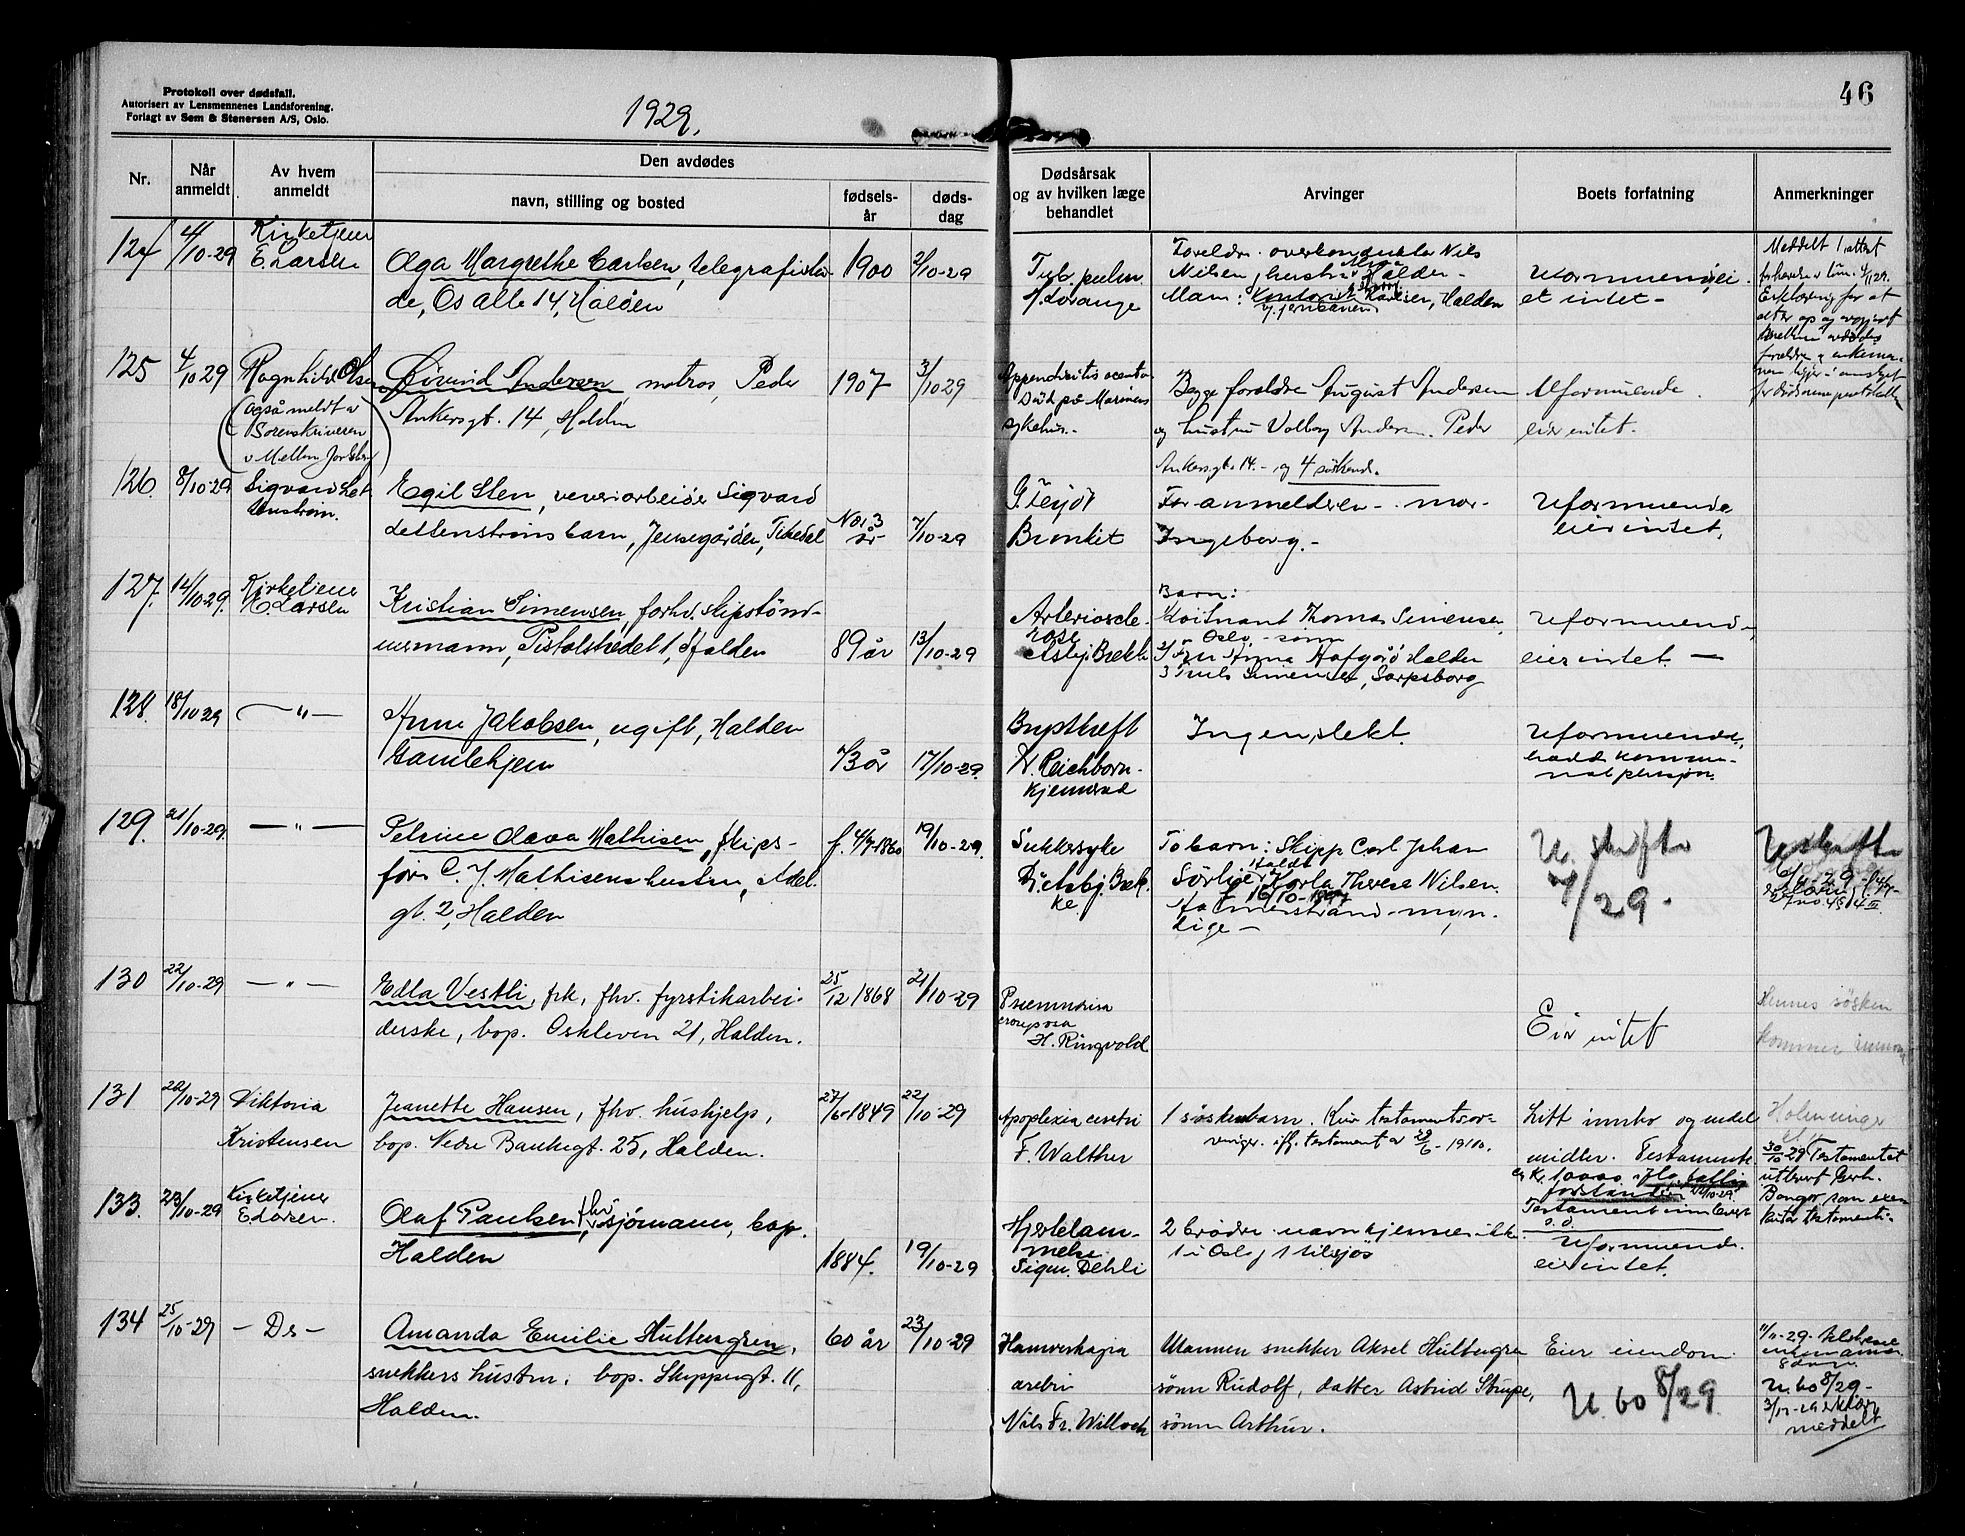 Protokoll over dødsfall.
Autorisert av Lensmennenes Landsforening.
Forlagt av Sem & Stenersen A/S, Oslo.
1929.
46
Nr.
Når anmeldt
Av hvem anmeldt
Den avdødes
navn, stilling og bosted
fødsels-år
døds-dag
Dødsårsak og av hvilken læge behandlet
Arvinger
Boets forfatning
Anmerkninger
124
4/10-29
Kirketjener
E. Larsen
Olga Margrethe Carlsen, telegrafister-
de, Os alle 14, Halden
1900
2/10-29
Tub. pulm.
Foreldre. overkonduktør Nils
Nilsen, hustru Halden -
Mann: Karlsen, Halden
v. jernbanen
Uformuende, ei
et intet -
Meddelt 1 attest
Erklæring for at
125
4/10 29
Ragnhild Olsen
(også meldt v
Sorenskriveren
v Mellem Jarlsberg)
Øivind Andersen matros, Peder
Ankersgt. 14, Halden
1907
3/10 29
Appendicitis acenta
Død på Marinens
sykehus.-
Begge foreldre August Andersen
og hustru Valborg Andersen. Peder
Ankersgt. 14. - og 4 søskend.
Uformuende
eier intet.
126.
8/10-29
Sigvard Let-
tenstrøm.
Egil Sten, veveriarbeider Sigvard
Lettenstrøms barn, Jensegården, Tistedal
3 år
7/10-29
Bronkit
For anmelderen - mor -
Ingeborg. -
Uformuende
eier intet.
127.
14/10-29.
Kirketjener
E. Larsen
Kristian Simensen, forhv. skipstøm-
mermann, Pistolstredet 1, Halden
89 år
13/10-29
Arterioscle-
rose
Asbj. Bækk
Barn:
Thomas Simensen,
Oslo - sønn
Fru Anna Halden
3 Truls Simensen, Sarpsborg
Uformuend-
eier intet. -
128.
18/10 29
— " —
Anne Jakobsen, ugift, Halden
Gamlehjem
73 år
17/10-29.
D. Reichborn-
Kjennerud
Ingen slekt.
Uformuende,
hadde kommu-
nal pensjon.
129.
21/10-29.
— " —
Petrine Olava Mathisen, skips-
fører C. J. Mathisens hustru, Adel.
gt. 2, Halden
f. 4/7-1860
19/10-29.
Sukkersyke
Dr. Asbj. Bæk-
ke.
To barn: Skipp. Carl Johan
Therese Nilsen.
Holmestrand - myn-
dige -
U. skifte
7/29.
U. skifte
130
22/10-29
— " —
Edla Vestli, frk, fhv. fyrstikarbei-
derske, bop. Oskleven 21, Halden.
25/12 1868
21/10-29
Pneumonia
crouposa
H. Ringvold
Eier intet
Hennes søsken
kommer
131
Viktoria
Kristensen
Jeanette Hansen, fhv. hushjelp,
bop. Nedre Bankegt. 25, Halden.
27/6-1849
22/10-29
Apoplexia cerebri
F. Walther
1 søskenbarn. Kun testamentsar-
vinger. iflg. testament av 29/6-1910.
Litt innbo og
midler. Testamente
30/10-29 Testamentet
utlevert
Bangor som exe-
kutor testamenti-
133.
23/10-29
Kirketjener
E. Larsen.
Olaf Paulsen, fhv. sjømann, bop.
Halden
1884.
19/10-29
Hjertelam-
melse.
Sigm. Dehli
2 brødre navn kjennes ikke
1 i Oslo, 1 tilsjøs
Uformuende.
eier intet.
134
25/10-29
— Ds —
Amanda Emilie Hultengren,
snekkers hustru. bop. Skippergt. 11,
Halden.
60 år
23/10-29
Hæmorrhagia
Nils Fr. Willoch
Mannen snekker Aksel Hultengren
sønn Rudolf, datter Astrid Strupe,
sønn Arthur.
Eier eiendom
U. 60 8/29.
U. 60 8/29 -
meddelt